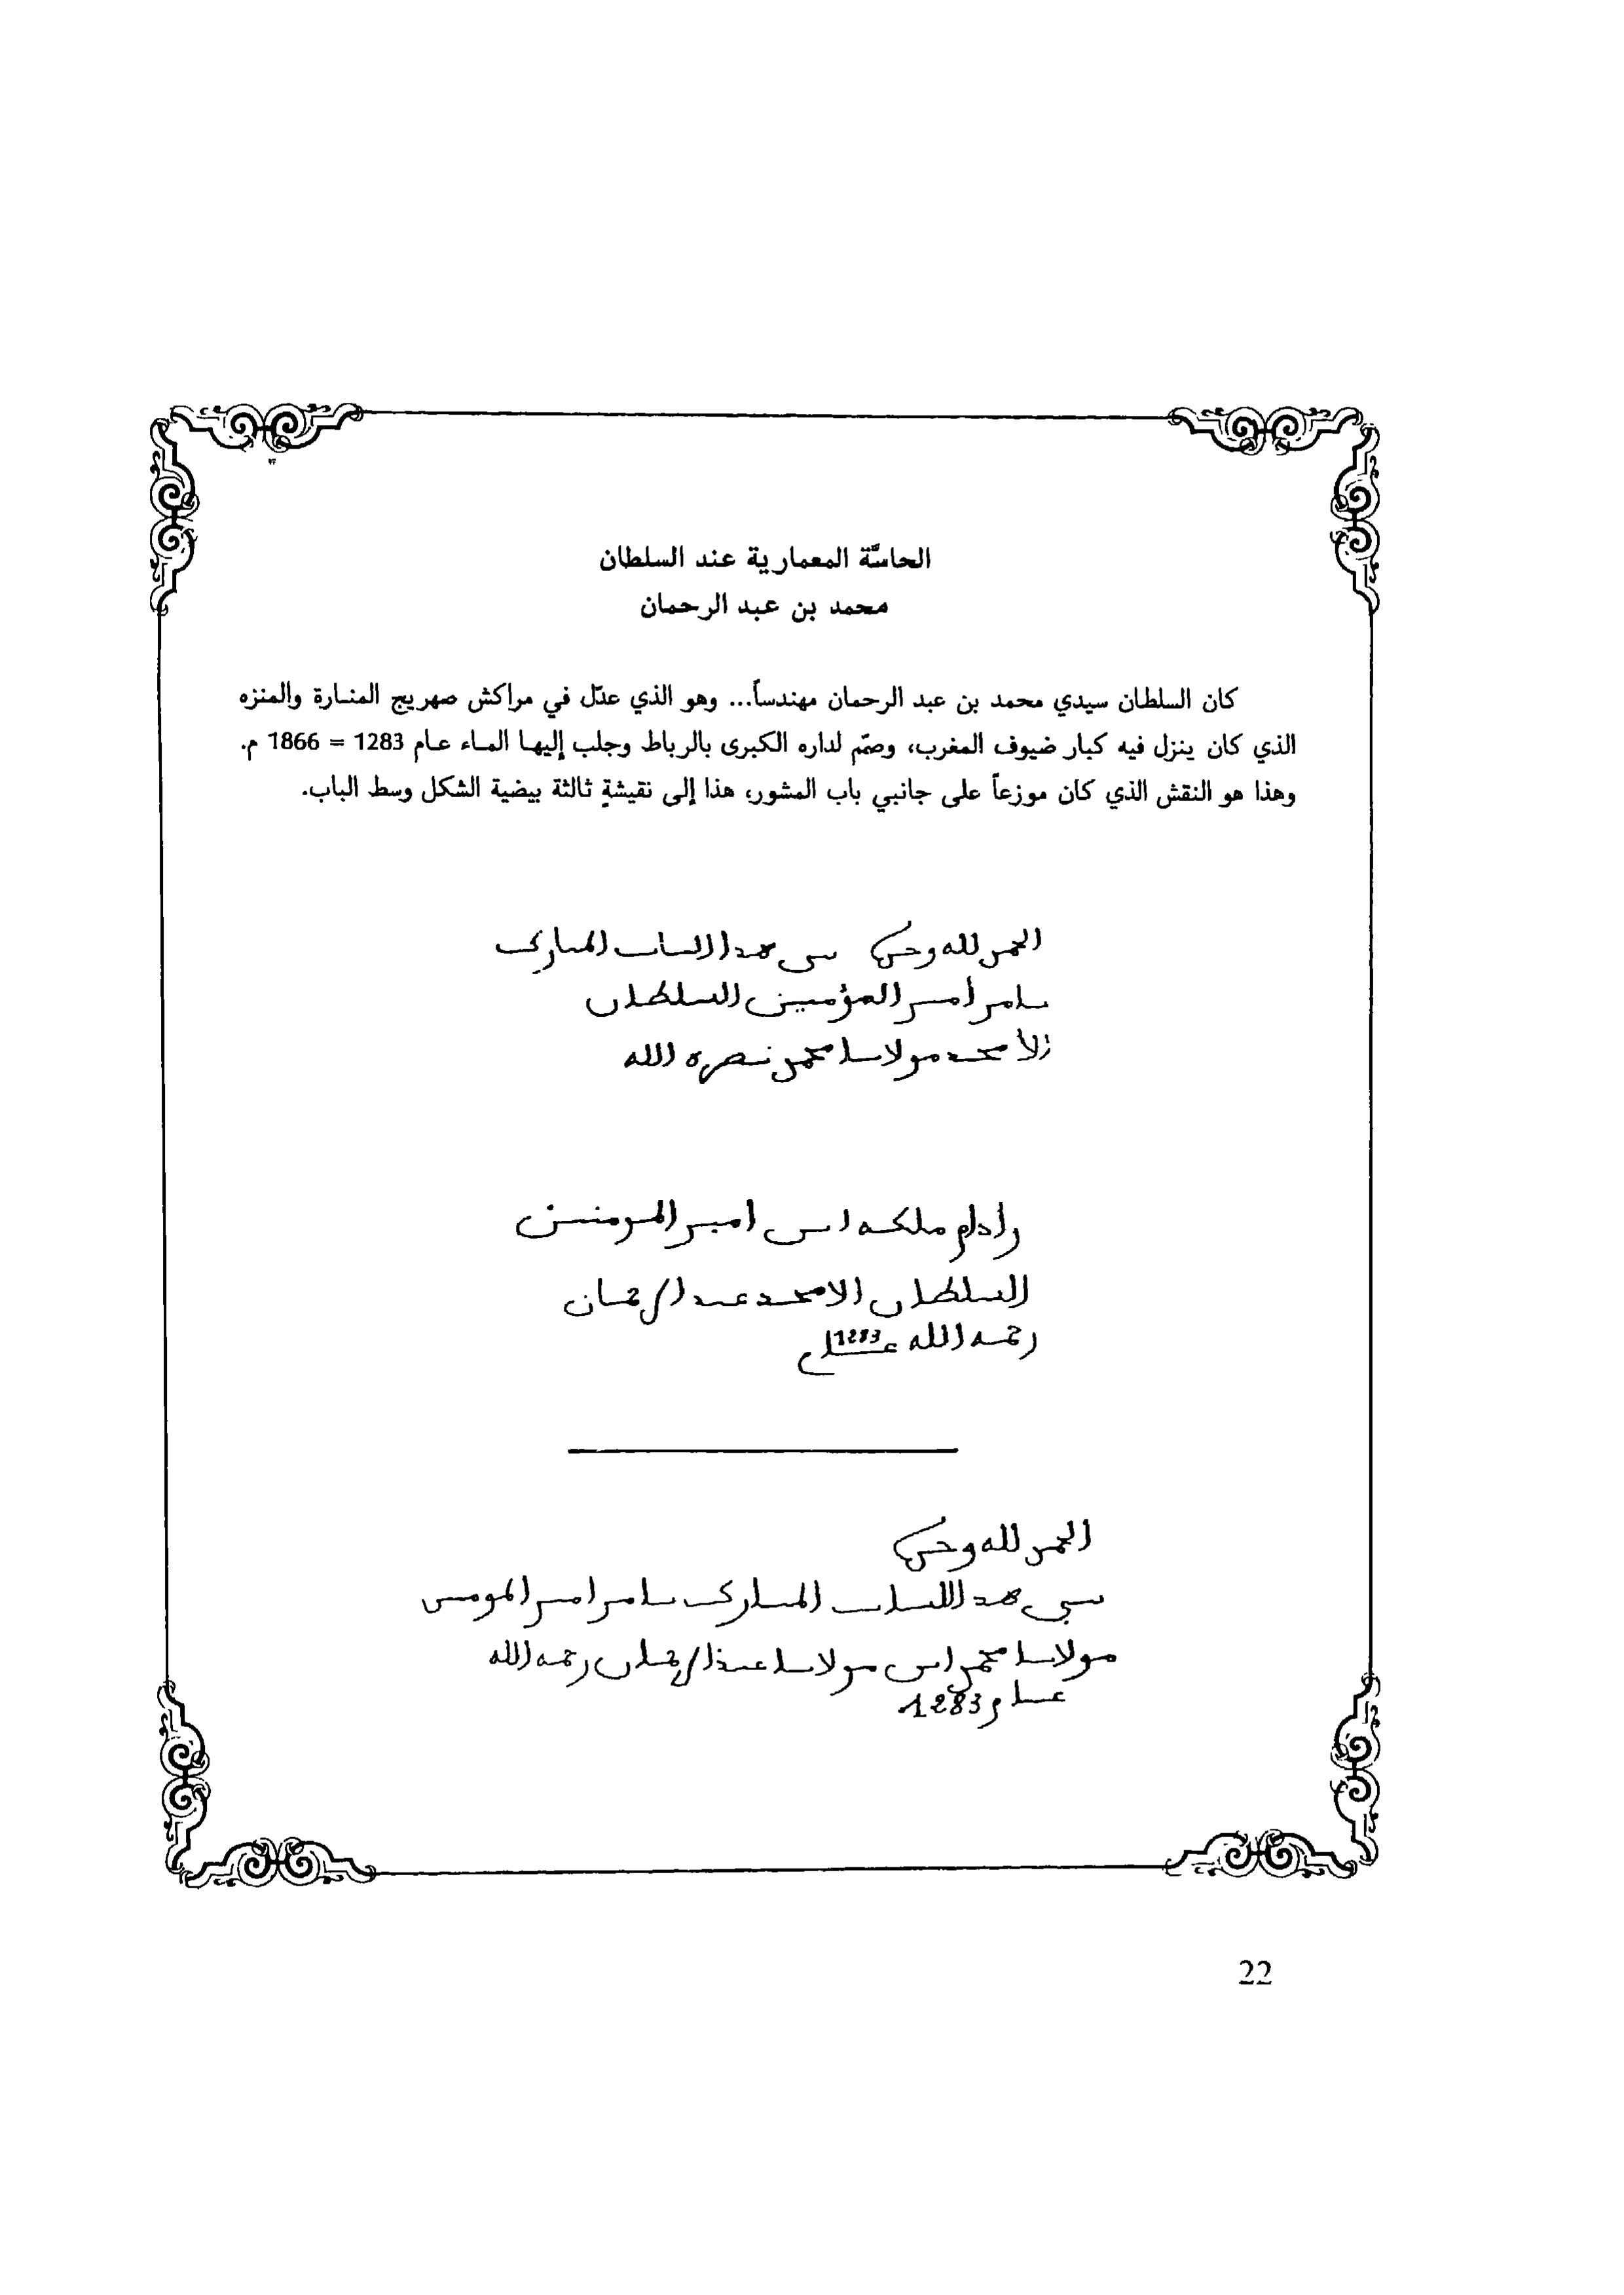 الحاسَّة المعمارية عند السلطان
محمد بن عبد الرحمان
كان السلطان سيدي محمد بن عبد الرحمان مهندساً... وهو الذي عدّل في مراكش صهريج المنارة والمنزه
الذي كان ينزل فيه كبار ضيوف المغرب، وصمّم لداره الكبرى بالرباط وجلب إليها الماء عام 1283 = 1866 م.
وهذا هو النقش الذي كان موزعاً على جانبي باب المشور، هذا إلى نقيشةٍ ثالثة بيضية الشكل وسط الباب.
الحمد لله وحده بني هذا الباب المبارك
بامر أمير المؤمنين السلطان
الأمجد مولانا محمد نصره الله
وأدام ملكه ابن امير المومنين
السلطان الامجد عبد الرحمان
رحمه الله عام 1283
الحمد لله وحده
بني هذا الباب المبارك بامر امير المومنين
مولانا محمد ابن مولانا عبد الرحمان رحمه الله
عام 1283
22